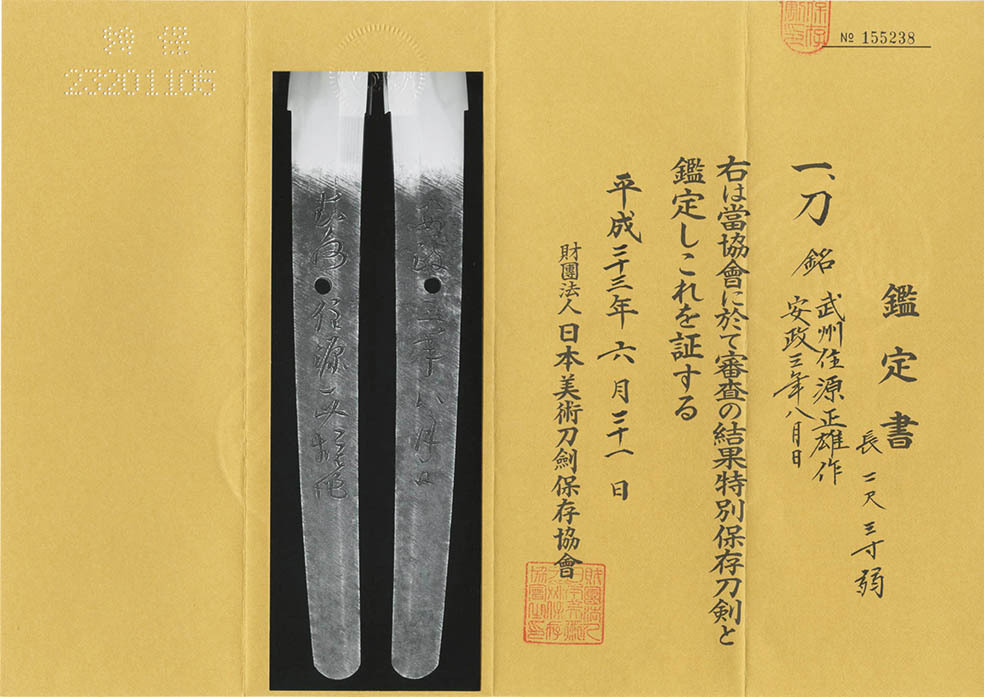 鑑定書
№ 155238
長二尺三寸弱
一、刀 銘 武州住源正雄作
安政三年八月日
右は當協會に於て審査の結果特別保存刀剣と
鑑定しこれを証する
平成二十三年六月二十一日
財團法人日本美術刀劍保存協會
安政三年八月日
特保
23201105